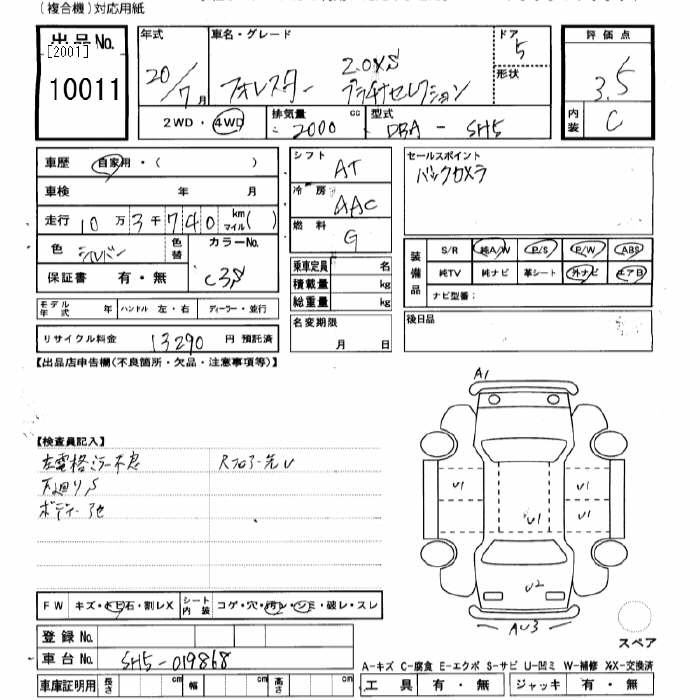 (複合機)対応用紙
出品No.
[2001]
10011
年式
20/7月
車名・グレード
フォレスター 2.0XS プラチナセレクション
ドア
5
形状
評価点
3.5
内装
C
2WD・4WD
排気量
2000
cc
型式
DBA - SH5
車歴
自家用・( )
車検 年 月
走行 10万3千740 km マイル( )
色
シルバー
色替
カラーNo.
C3S
保証書 有・無
モデル年式 年
ハンドル 左・右
ディーラー・並行
リサイクル料金 13290 円 預託済
シフト
AT
冷房
AAC
燃料
G
乗車定員 名
積載量 kg
総重量 kg
名変期限
月 日
セールスポイント
バックカメラ
装備品
S/R 純A/W P/S P/W ABS
純TV 純ナビ 革シート 外ナビ エアB
ナビ型番：
後日品
【出品店申告欄(不良箇所・欠品・注意事項等)】
【検査員記入】
左電格ミラー不
下廻りS
ボディー
RフロアーU
A1
U1
U1
U1
U1
U2
AU3
スペア
FW キズ・トビ石・割レX
シート内装 コゲ・穴・汚レ・シミ・破レ・スレ
登録No.
車台No. SH5-019868
車庫証明用 長さ cm 幅 cm 高さ cm
A-キズ C-腐食 E-エクボ S-サビ U-凹ミ W-補修 X,X-交換済
工具 有・無 ジャッキ 有・無